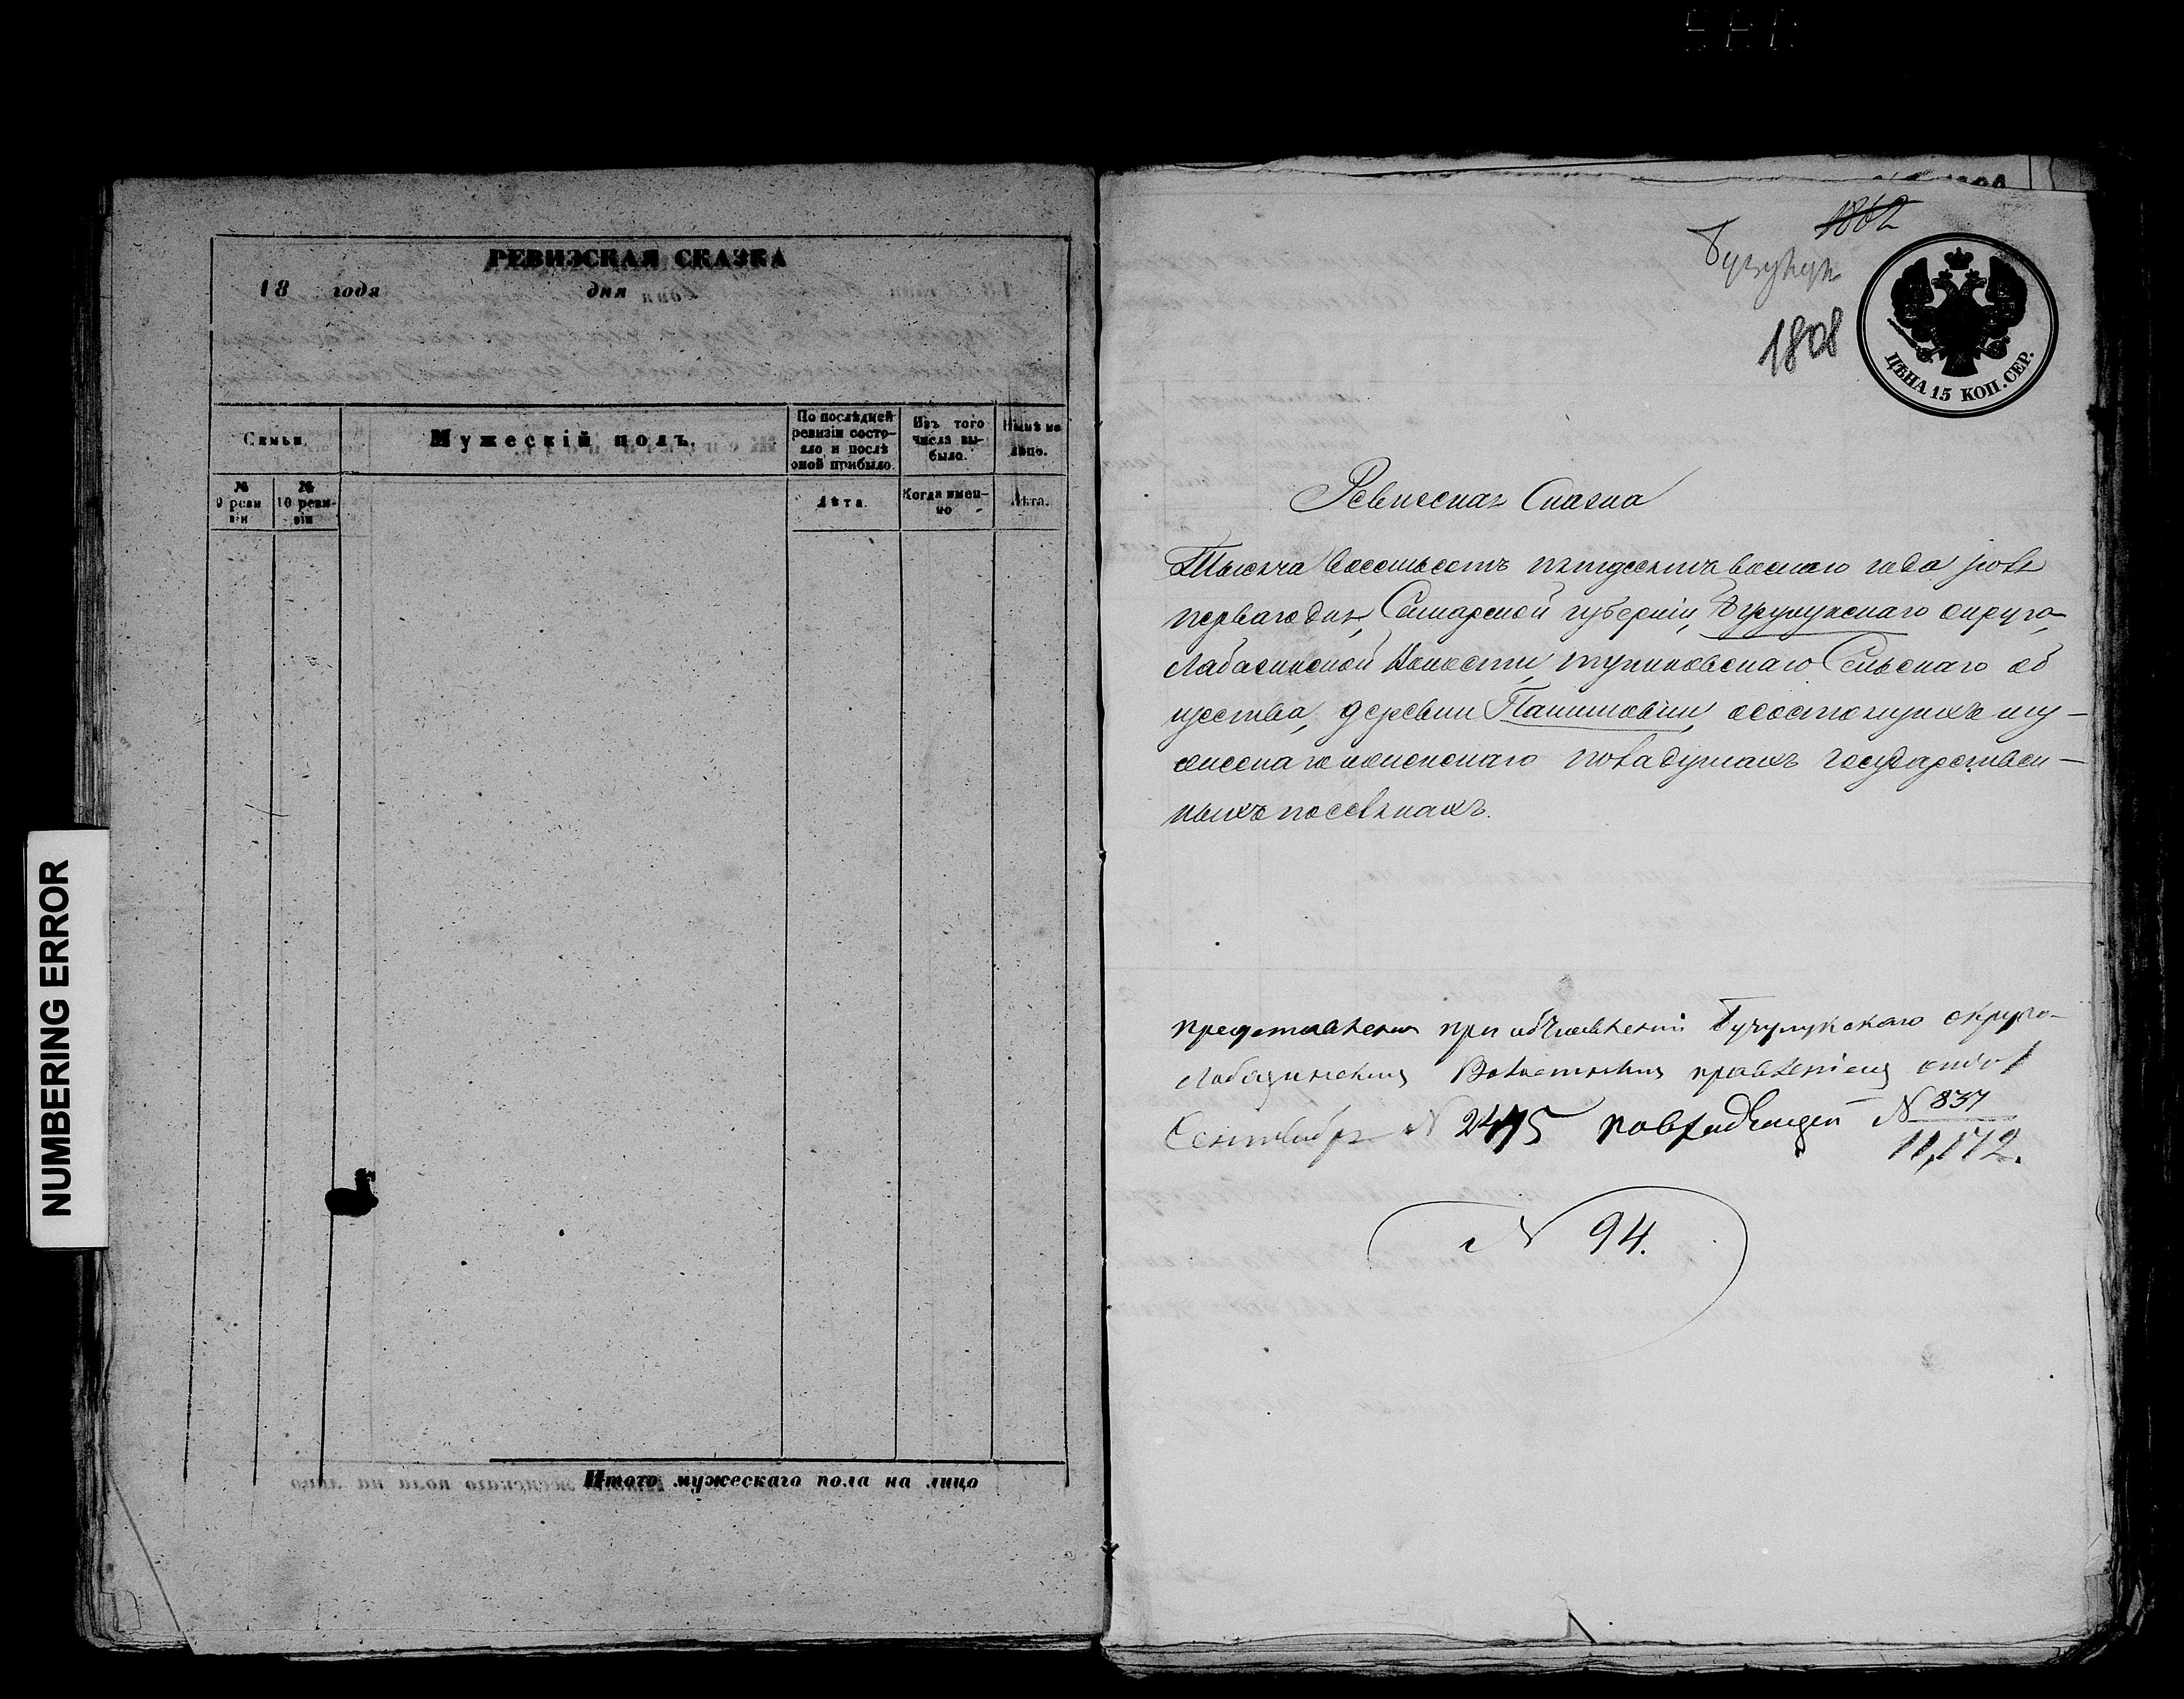 NUMBERING ERROR
РЕВИЗСКАЯ СКАЗКА
18 года дня
Семьи.
Мужескій полъ.
По послѣдней ревизіи состояло и послѣ оной прибыло.
Изъ того числа выбыло.
Нынѣ на лицо.
№ 9 ревизіи
№ 10 ревизіи
Лѣта.
Когда именно
Лѣта.
Итого мужескаго пола на лицо
1862
Бузулук
1808
ЦѢНА 15 КОП. СЕР.
Ревизская Сказка
Тысяча восемьсотъ пятдесятъ восмаго года
перваго дня, Самарской губерніи, Бузулукскаго округа
Лабазинской Волости, Сельскаго об
щества, деревни о состоящихъ му-
жескаго и женскаго пола душахъ государствен-
ныхъ поселянахъ.
представлена при объявленіи Бузулукскаго округа
Лабазинскимъ Волостнымъ правленіемъ отъ
Сентября № 2475 № 837
11,172.
№ 94.